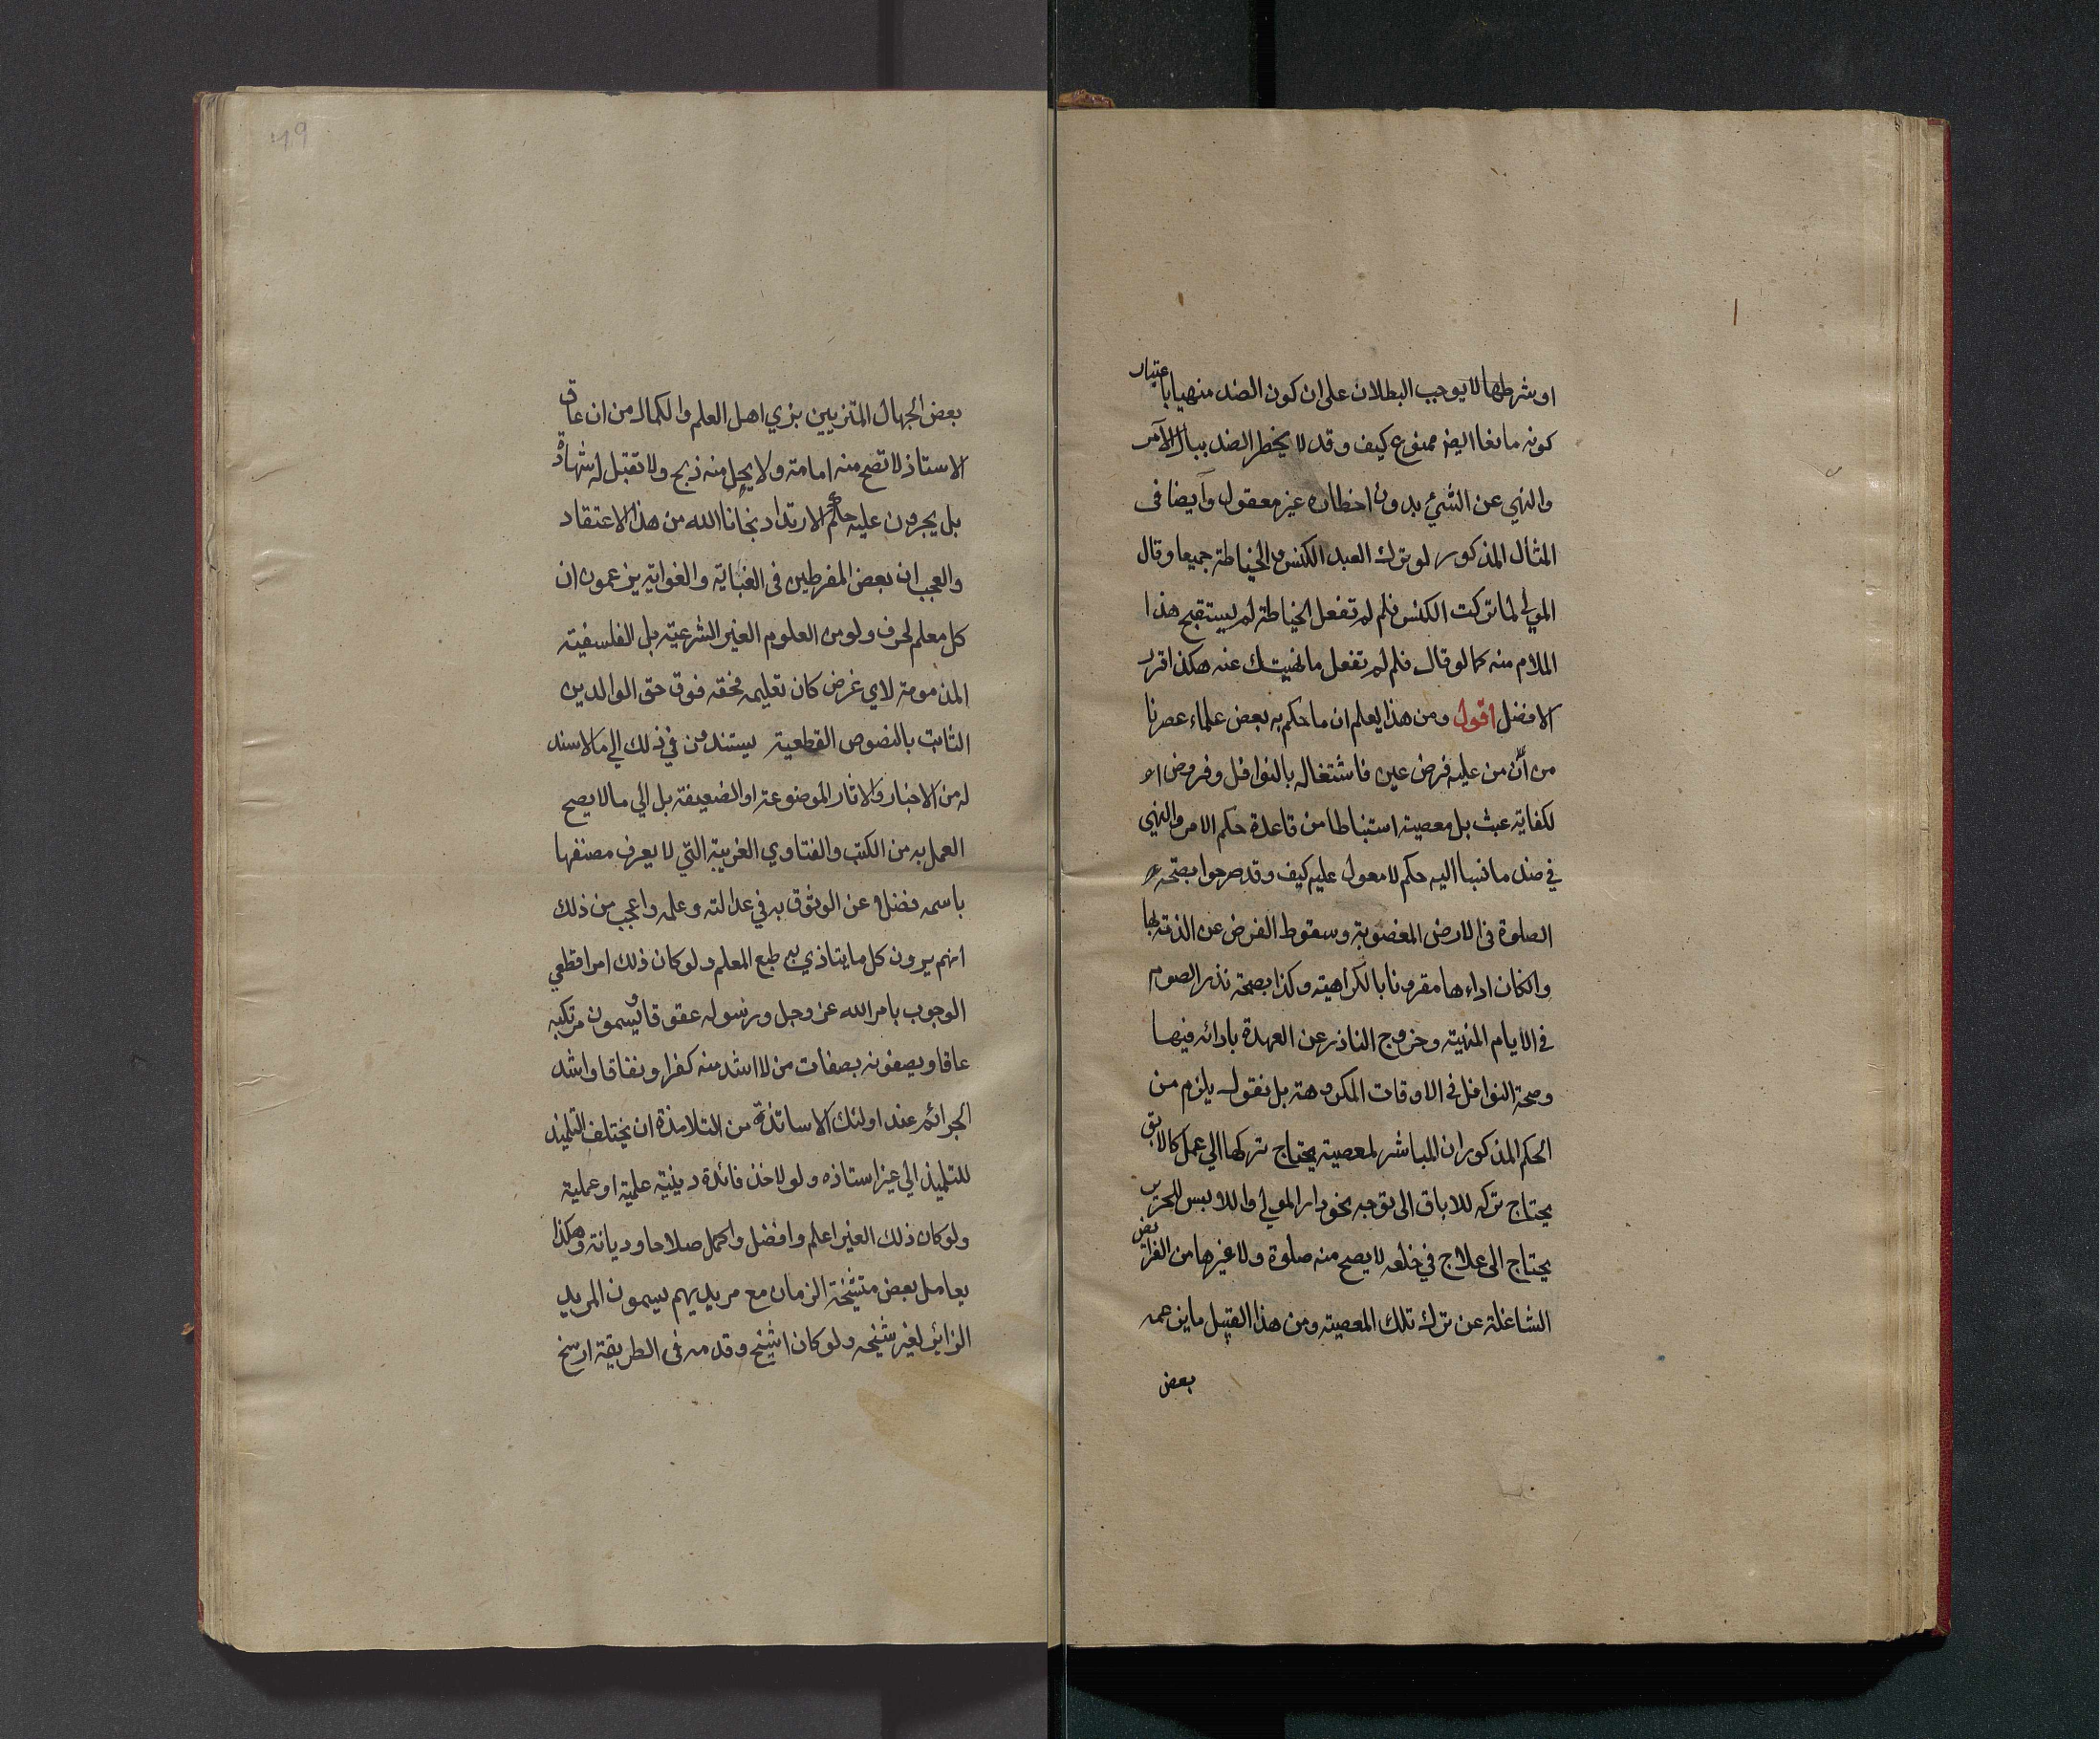 او شرطها لا يوجب البطلان على ان كون الضد منهيا باعتبار
كونه مانعا ايض ممنوع كيف وقد لا يخطر الضد ببال الآمر
والنهي عن الشيء بدون اخطاره غير معقول وايضا فى
المثال المذكور لو ترك العبد الكنس والخياطة جميعا وقال
المولى لما تركت الكنس فلم لم تفعل الخياطة لم يستقبح هذا
الملام منه كما لو قال فلم لم تفعل ما نهيتك عنه هكذا قرر
الافضل اقول ومن هذا يعلم ان ما حكم به بعض علماء عصرنا
من ان من عليه فرض عين فاشتغاله بالنوافل وفروض ا
لكفاية عبث بل معصية استنباطا من قاعدة حكم الامر والنهي
في ضد ما نسبا اليه حكم لا معول عليه كيف وقد صرحوا بصحة
الصلوة فى الارض المغصوبة وسقوط الفرض عن الذمة بها
وان كان اداءها مقرونا بالكراهية وكذا بصحة نذر الصوم
فى الايام المنهية وخروج الناذر عن العهدة بادائه فيها
وصحة النوافل فى الاوقات المكروهة بل نقول يلزم من
الحكم المذكور ان المباشر لمعصية يحتاج تركها الى عمل كالابق
يحتاج تركه للاباق الى توجه نحو دار المولى واللابس للحرير
يحتاج الى علاج في خلعه لا يصح منه صلوة ولا غيرها من الفرائض
الشاغلة عن ترك تلك المعصية ومن هذا القبيل ما يزعمه
بعض
بعض الجهال المتزيين بزي اهل العلم والكمال من ان عاق
الاستاذ لا تصح منه امامة ولا يحل منه ذبح ولا تقبل له شهادة
بل يجرون عليه حكم الارتداد نجانا الله من هذا الاعتقاد
والعجب ان بعض المفرطين فى الغباية والغواية يزعمون ان
كل معلم لحرف ولو من العلوم الغير الشرعية بل الفلسفية
المذمومة لاي غرض كان تعليمه فحقه فوق حق الوالدين
الثابت بالنصوص القطعية يستندون في ذلك الى ما لا سند
له من الاخبار والاثار الموضوعة او الضعيفة بل الى ما لا يصح
العمل به من الكتب والفتاوي الغريبة التي لا يعرف مصنفها
باسمه فضلا عن الوثوق به في عدالته وعلمه واعجب من ذلك
انهم يرون كل ما يتاذي به طبع المعلم ولو كان ذلك امرا قطعي
الوجوب بامر الله عز وجل ورسوله عقوقا ويسمون مرتكبه
عاقا ويصفونه بصفات من لا اشد منه كفرا ونفاقا واشد
الجرائم عند اولئك الاساتذة من التلامذة ان يختلف التلميذ
للتلميذ الى غير استاذه ولو لاخذ فائدة دينية علمية او عملية
ولو كان ذلك الغير اعلم وافضل واكمل صلاحا وديانة وهكذا
يعامل بعض متشيخة الزمان مع مريديهم يسمون المريد
الزاير لغير شيخه ولو كان اشيخ وقدمه فى الطريقة ارسخ